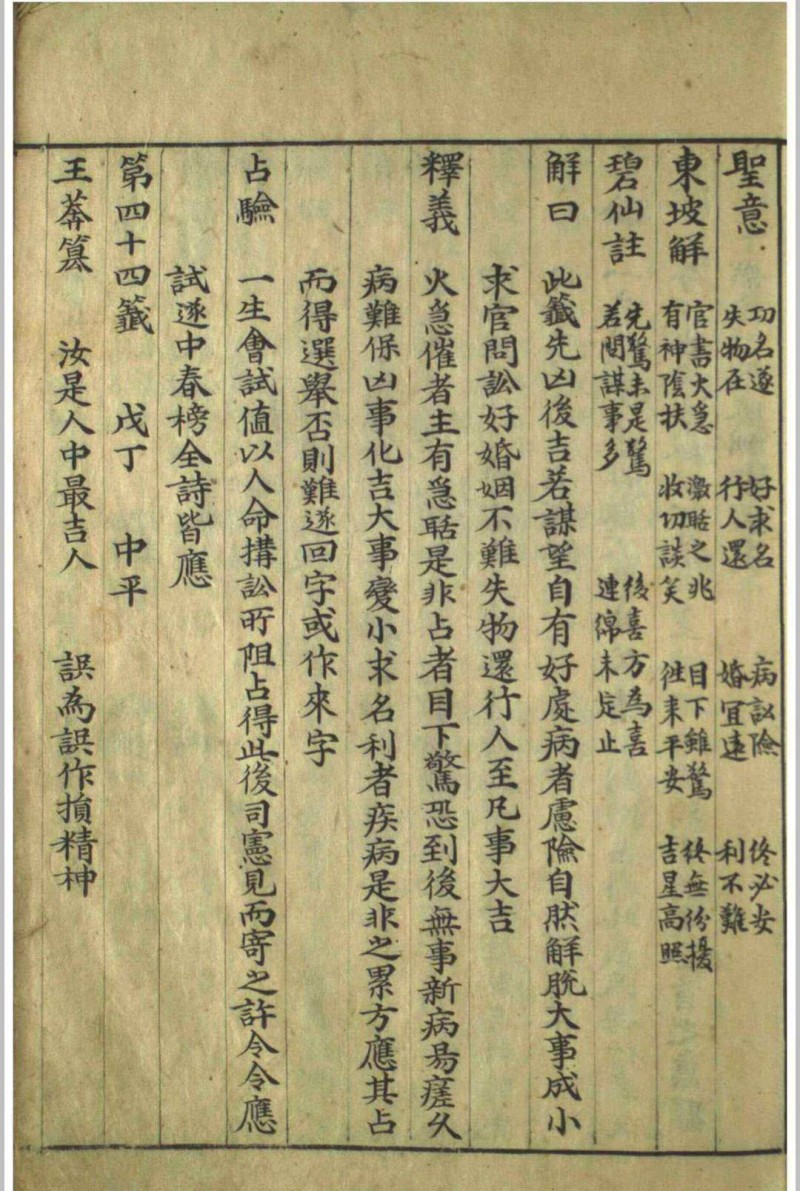 聖意 功名遂 失物在 好求名 行人還 病訟險 婚宜遠 終必安 利不難
東坡解 官書火急 有神陰扶 激聒之兆 收功談笑 目下雖驚 徃来平安 終無紛擾 吉星高照
碧仙註 先驚未是驚 若問謀事多 後喜方為喜 連綿未定止
解曰 此籤先凶後吉若謀望自有好處病者慮險自然解脫大事成小
求官問訟好婚姻不難失物還行人至凡事大吉
釋義 火急催者主有急聒是非占者目下驚恐到後無事新病易瘥久
病難保凶事化吉大事變小求名利者疾病是非之累方應其占
而得選舉否則難遂回字或作來字
占驗 一生會試值以人命搆訟所阻占得此後司憲見而寄之許令令應
試遂中春榜全詩皆應
第四十四籤 戊丁 中平
王莽篡 汝是人中最吉人 誤為誤作損精神